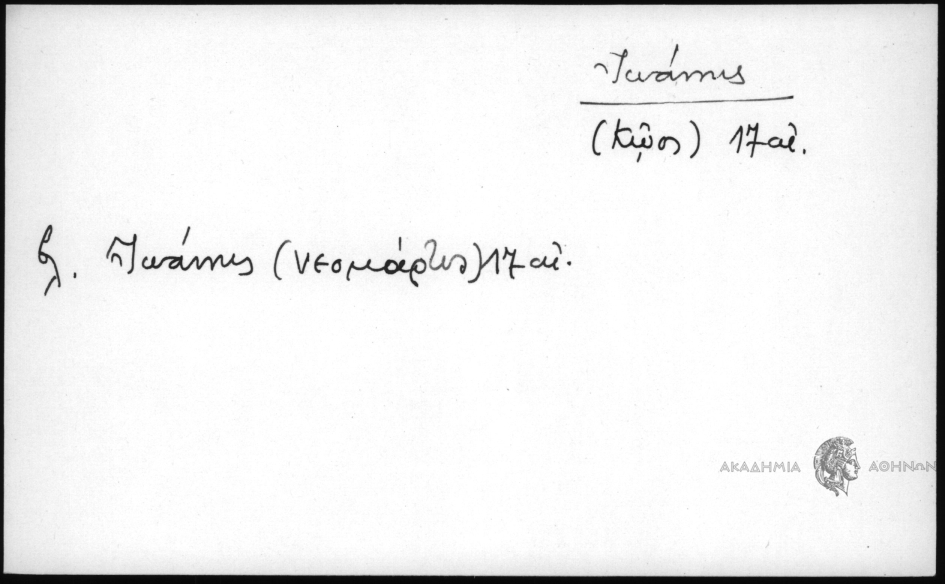 Ἰωάννης
(Κῷος) 17 αἰ.
βλ. Ἰωάννης (νεομάρτυς) 17 αἰ.
ΑΚΑΔΗΜΙΑ ΑΘΗΝΩΝ